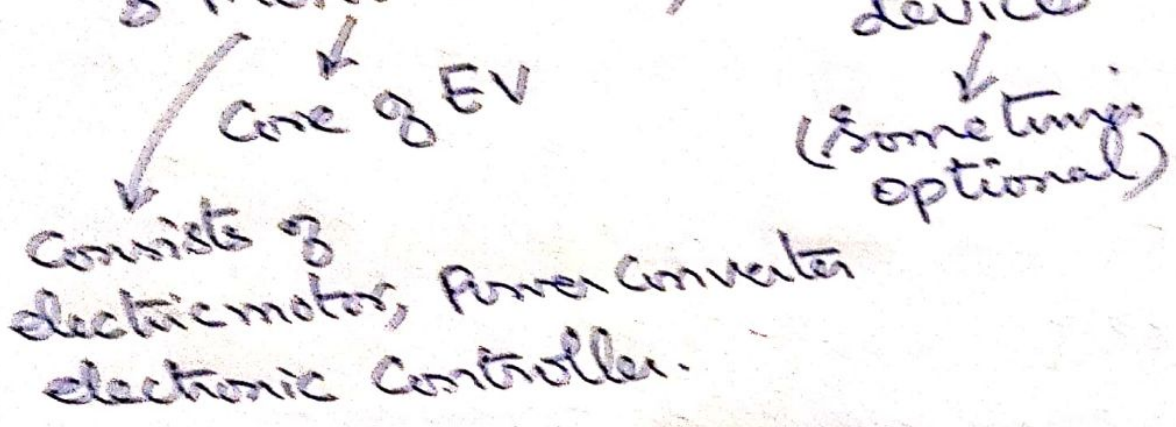 device
Core of EV
(Sometimes
optional)
Consists of
electric motor, Power Converter
electronic Controller.